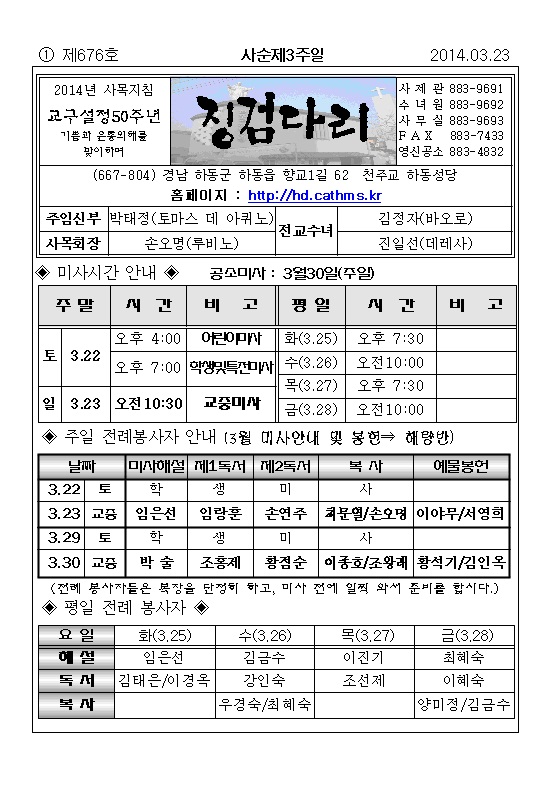 ① 제676호 사순제3주일 2014.03.23
2014년 사목지침
교구설정50주년
기쁨과 은총의해를
맞이하며
징검다리
사 제 관 883-9691
수 녀 원 883-9692
사 무 실 883-9693
F A X 883-7433
영신공소 883-4832
(667-804) 경남 하동군 하동읍 향교1길 62 천주교 하동성당
홈페이지 : http://hd.cathms.kr
주임신부 박태정(토마스 데 아퀴노) 전교수녀 김정자(바오로)
사목회장 손오명(루비노) 진일선(데레사)
◈ 미사시간 안내 ◈ 공소미사 : 3월30일(주일)
주 말 시 간 비 고 평 일 시 간 비 고
토 3.22 오후 4:00 어린이미사 화(3.25) 오후 7:30
오후 7:00 학생및특전미사 수(3.26) 오전10:00
목(3.27) 오후 7:30
일 3.23 오전10:30 교중미사 금(3.28) 오전10:00
◈ 주일 전례봉사자 안내 (3월 미사안내 및 봉헌⇒ 해량반)
날짜 미사해설 제1독서 제2독서 복 사 예물봉헌
3.22 토 학 생 미 사
3.23 교중 임은선 임랑훈 손연주 최문월/손오명 이야무/서영희
3.29 토 학 생 미 사
3.30 교중 박 술 조홍제 황점순 이종호/조왕래 황석기/김인옥
(전례 봉사자들은 복장을 단정히 하고, 미사 전에 일찍 와서 준비를 합시다.)
◈ 평일 전례 봉사자 ◈
요 일 화(3.25) 수(3.26) 목(3.27) 금(3.28)
해 설 임은선 김금수 이진기 최혜숙
독 서 김태은/이경옥 강인숙 조선제 이혜숙
복 사 우경숙/최혜숙 양미정/김금수